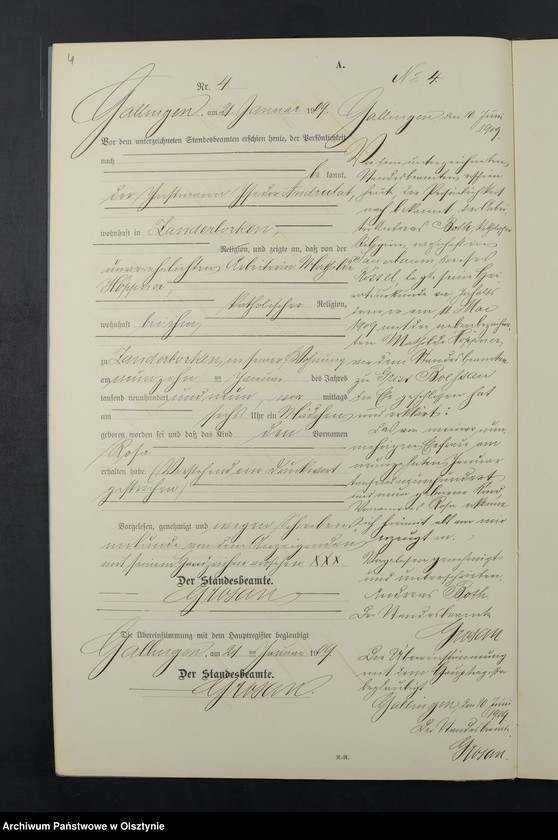 4
A.
Nr. 4.
Gallingen, am 21. Januar 1909.
Vor dem unterzeichneten Standesbeamten erschien heute, der Persönlichkeit
nach
be kannt,
der Andreas
wohnhaft in Zanderborken,
Religion, und zeigte an, daß von der
unverehelichten Arbeiterin Mathilde
Höppner,
katholischer Religion,
wohnhaft bei ihm,
zu Zanderborken, in seiner Wohnung
am neunzehn ten Januar des Jahres
tausend neunhundert und neun, vor mittags
um sechs Uhr ein Mädchen
geboren worden sei und daß das Kind den Vornamen
Rosa
erhalten habe. (Vorstehend ein Druckwort
gestrichen)
Vorgelesen, genehmigt und wegen Schreibens-
unkunde von dem Anzeigenden
mit seinem Handzeichen versehen XXX
Der Standesbeamte.
Grosan
Die Übereinstimmung mit dem Hauptregister beglaubigt
Gallingen, am 21. ten Januar 1909.
Der Standesbeamte.
Grosan.
No 4.
Gallingen, den 10. Juni
1909.
Vor dem unterzeichneten
Standesbeamten erschien
heute, der Persönlichkeit
nach bekannt, der
Andreas Both, katholischer
Religion, wohnhaft in
Kreises
Rössel, legte seine Hei-
ratsurkunde vor, Inhalts
deren er am 11. Mai
1909 mit der nebenbezeichne-
ten Mathilde Höppner,
vor dem Standesbeamten
zu Gross Boessau
die Ehe geschlossen hat
und erklärt:
Das von meiner nun-
mehrigen Ehefrau am
neunzehnten Januar
tausendneunhundert
und neun geborene Kind,
Vornamens Rosa erkenne
ich hiermit als von mir
erzeugt an.
Vorgelesen, genehmigt
und unterschrieben
Andreas Both
Der Standesbeamte
Grosan
Die Übereinstimmung
mit dem Hauptregister
beglaubigt
Gallingen, den 10. Juni
1909
Der Standesbeamte.
Grosan.
R.-R.
Archiwum Państwowe w Olsztynie